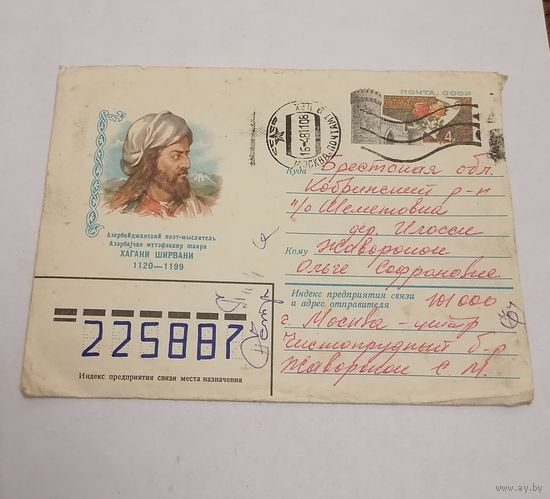 ПОЧТА СССР
4
МОСКВА ПОЧТАМТ
16-4811 08
Куда Брестская обл.
Кобринский р-н
п/о Шеметовка
дер. Илоски
Кому Жаворонок
Ольге Софроновне
Индекс предприятия связи
и адрес отправителя 101000
г. Москва-центр
Чистопрудный б-р
Жаворонок С. М.
Азербайджанский поэт-мыслитель
Азәрбајҹан мүтәфәккир шаири
ХАГАНИ ШИРВАНИ
1120—1199
225887
Индекс предприятия связи места назначения
www.ay.by